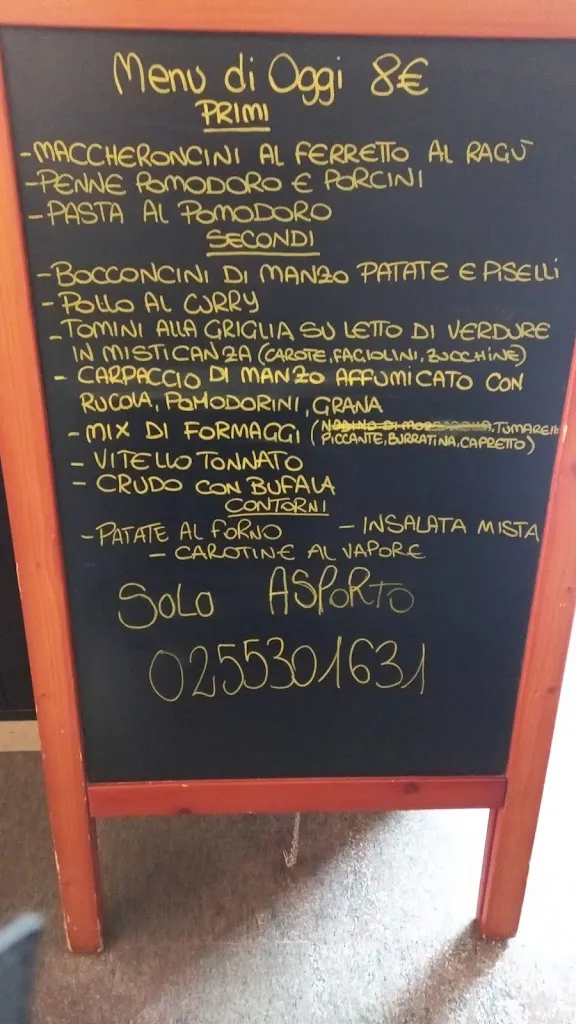 Menu di Oggi 8€
PRIMI
-MACCHERONCINI AL FERRETTO AL RAGÙ
-PENNE POMODORO E PORCINI
-PASTA AL POMODORO
SECONDI
-BOCCONCINI DI MANZO PATATE E PISELLI
-POLLO AL CURRY
-TOMINI ALLA GRIGLIA SU LETTO DI VERDURE
IN MISTICANZA (CAROTE, FAGIOLINI, ZUCCHINE)
- CARPACCIO DI MANZO AFFUMICATO CON
RUCOLA, POMODORINI, GRANA
-MIX DI FORMAGGI (
PICCANTE, BURRATINA, CAPRETTO)
- VITELLO TONNATO
- CRUDO CON BUFALA
CONTORNI
-PATATE AL FORNO - INSALATA MISTA
- CAROTINE AL VAPORE
SOLO ASPORTO
0255301631